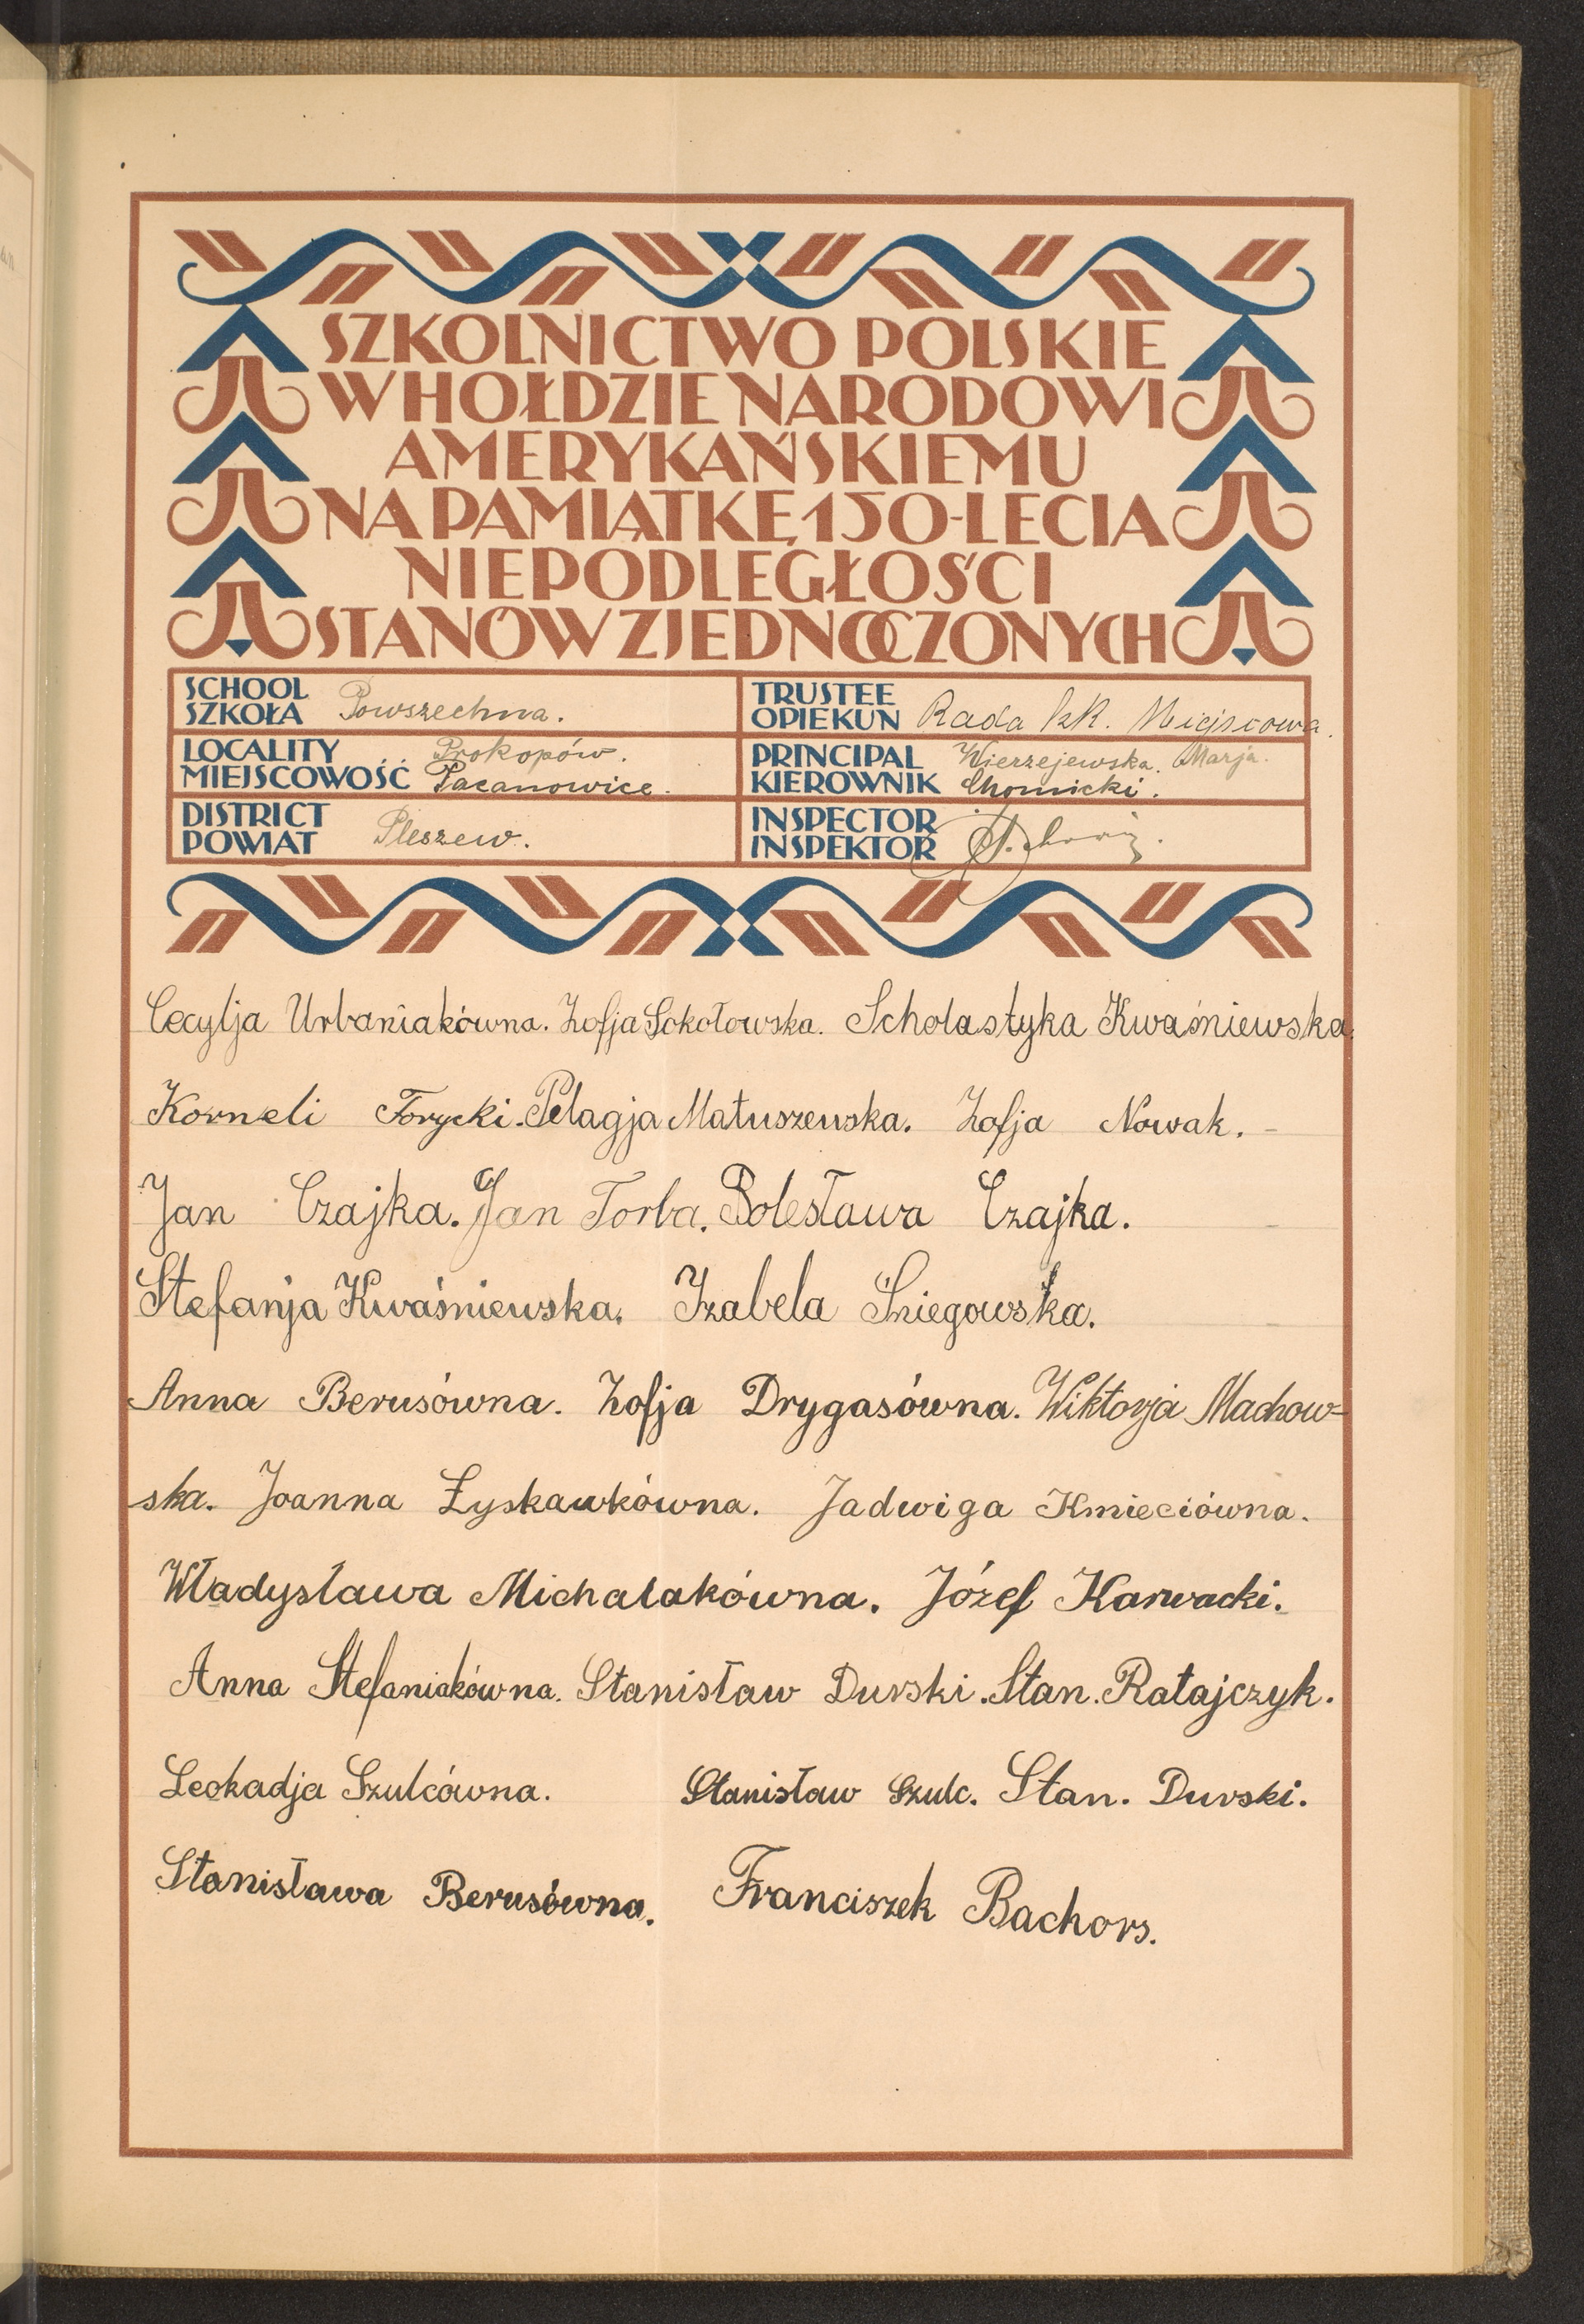 SZKOLNICTWO POLSKIE
W HOŁDZIE NARODOWI
AMERYKAŃSKIEMU
NA PAMIĄTKĘ 150-LECIA
NIEPODLEGŁOŚCI
STANÓW ZJEDNOCZONYCH
SCHOOL
SZKOŁA Powszechna.
TRUSTEE
OPIEKUN Rada szk. Miejscowa.
LOCALITY Prokopów.
MIEJSCOWOŚĆ Pacanowice.
PRINCIPAL Wierzejewska. Marja.
KIEROWNIK Chomicki.
DISTRICT
POWIAT Pleszew.
INSPECTOR
INSPEKTOR
Cecylja Urbaniakówna. Zofja Sokołowska. Scholastyka Kwaśniewska.
Korneli Torycki. Pelagja Matuszewska. Zofja Nowak. -
Jan Czajka. Jan Torba. Bolesława Czajka.
Stefanja Kwaśniewska. Izabela Śniegowska.
Anna Berusówna. Zofja Drygasówna. Wiktorja Machow=
ska. Joanna Łyskawkówna. Jadwiga Kmieciówna.
Władysława Michalakówna. Józef Karwacki.
Anna Stefaniakówna. Stanisław Durski. Stan. Ratajczyk.
Leokadja Szulcówna. Stanisław Szulc. Stan. Durski.
Stanisława Berusówna. Franciszek Bachors.